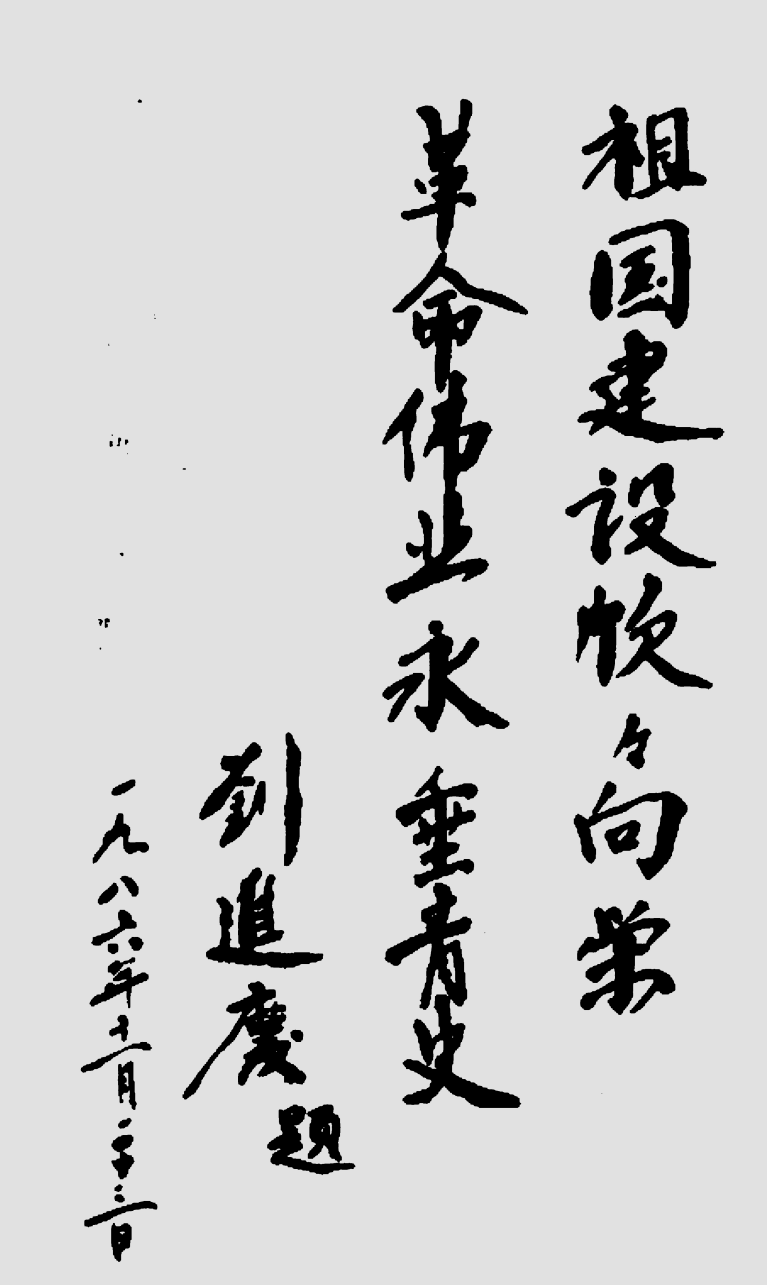 祖国建设欣々向栄
革命伟业永垂青史
劉進慶題
一九八六年十一月二十三日